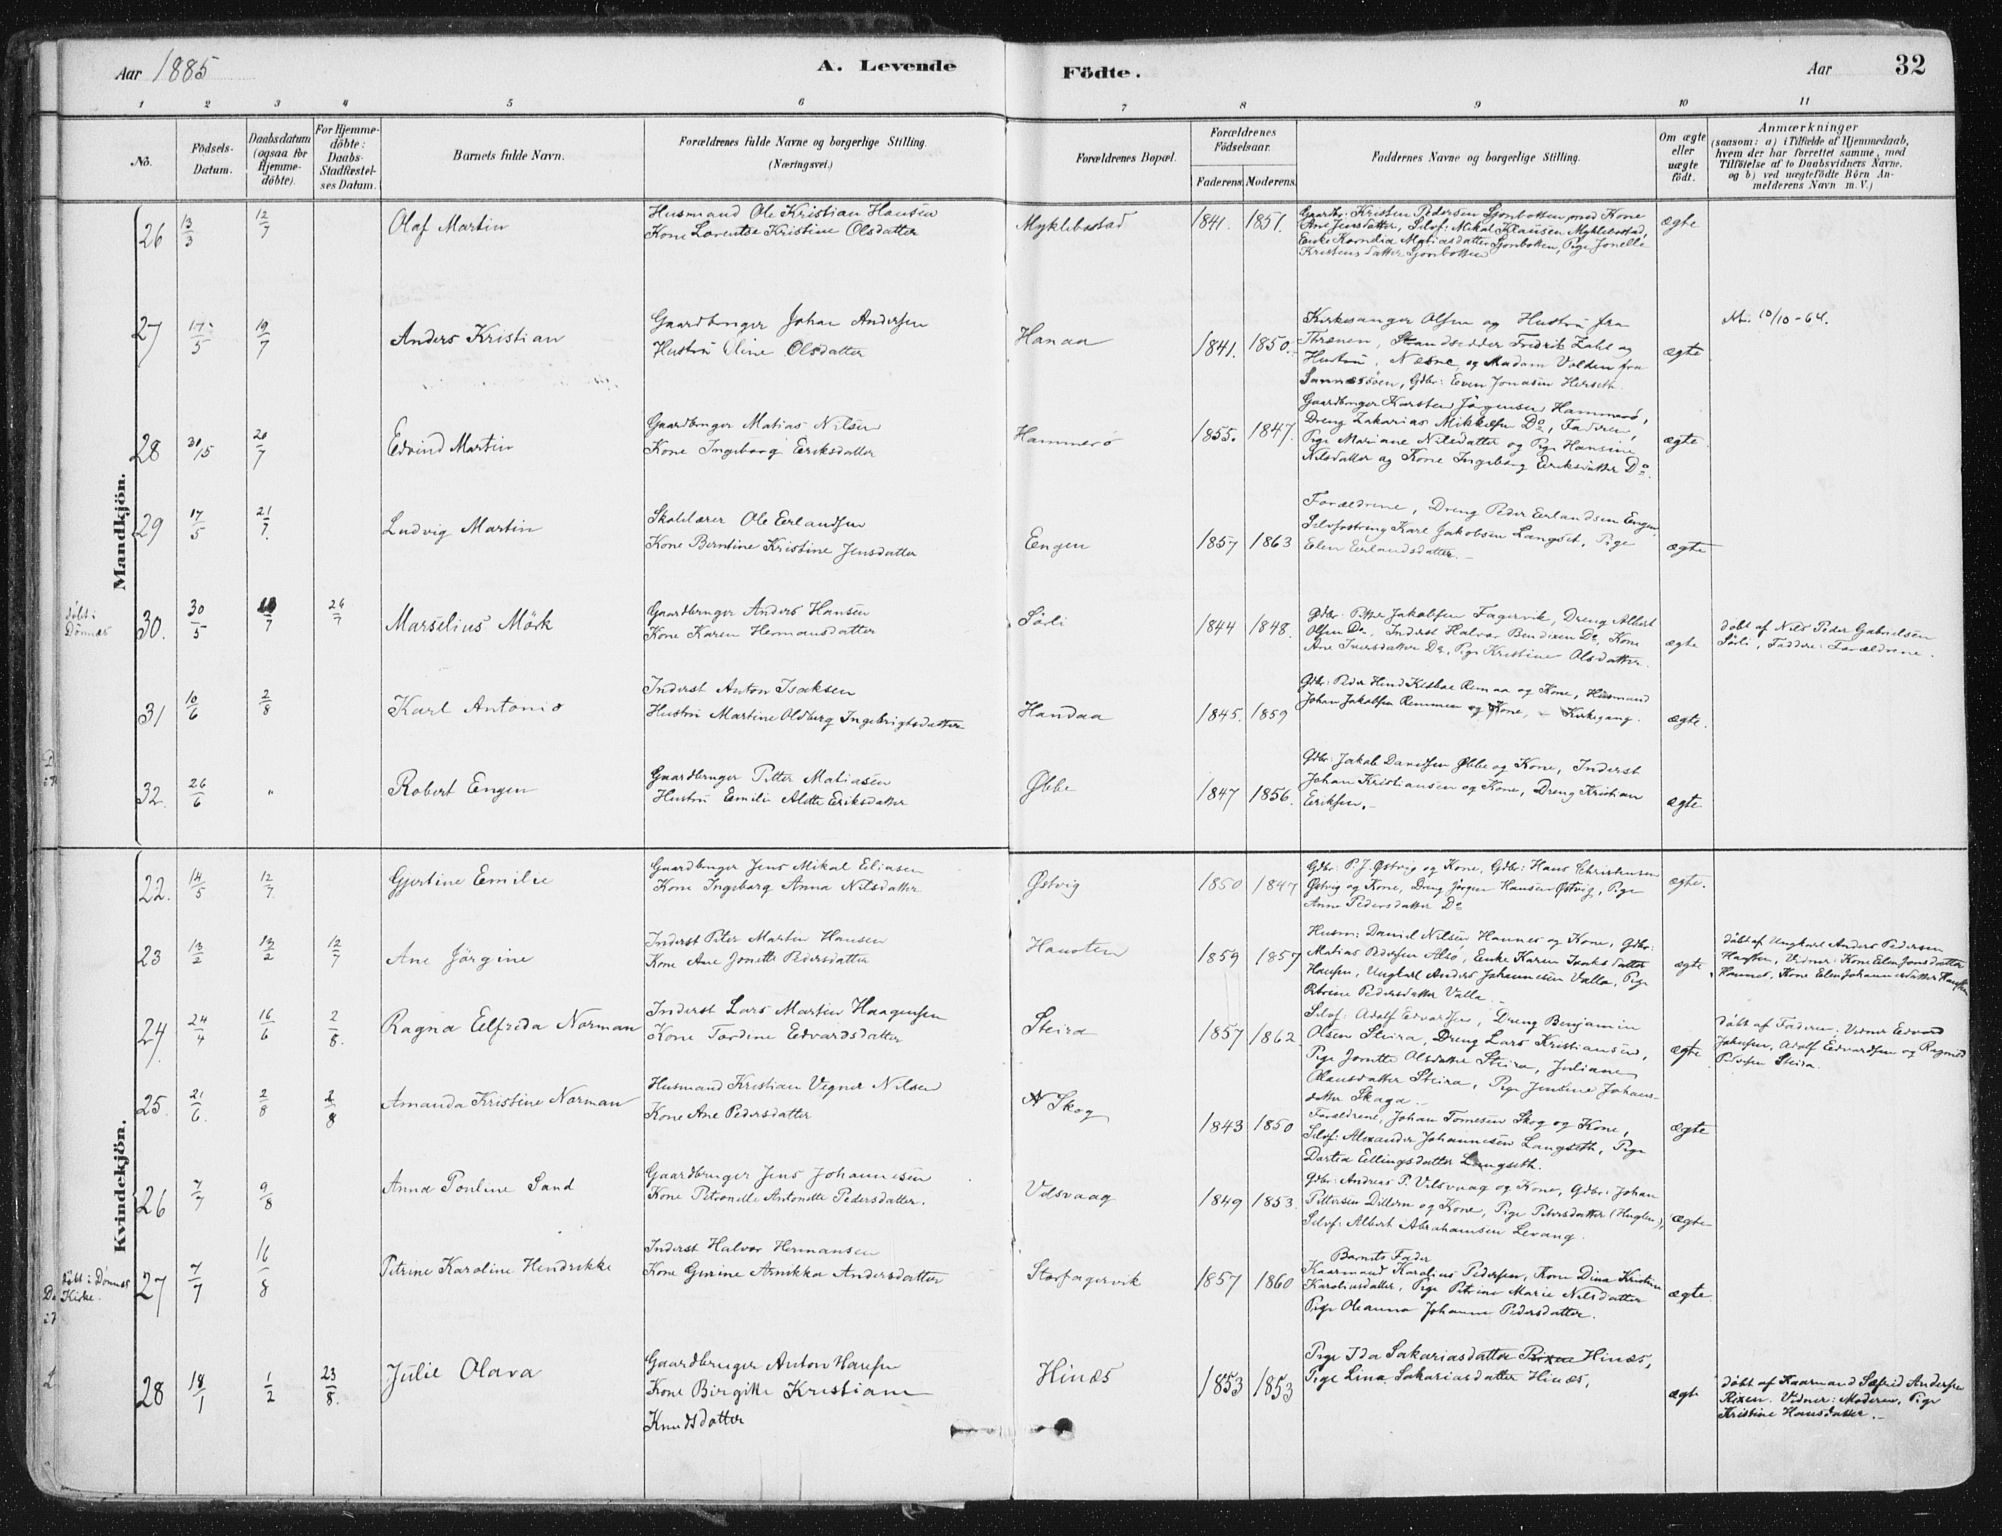 Aar 1885
A. Levende
Födte.
Aar
32
1 2 3 4 5 6 7 8 9 10 11
No.
Födsels-Datum.
Daabsdatum (ogsaa for Hjemme-döbte).
For Hjemme-döbte: Daabs-Stadfæstel-ses Datum.
Barnets fulde Navn.
Forældrenes fulde Navne og borgerlige Stilling. (Næringsvei.)
Forældrenes Bopæl.
Forældrenes Födselsaar.
Faderens. Moderens.
Faddernes Navne og borgerlige Stilling.
Om ægte eller uægte födt.
Anmærkninger
(saasom: a) i Tilfælde af Hjemmedaab,
hvem der har forrettet samme, med
Tilföielse af to Daabsvidners Navne,
og b) ved uægtefödte Börn An-
melderens Navn m. V.)
Mandkjön.
26 13/3 12/7 Olaf Martin
Husmand Ole Kristian Hansen
Kone Lorentse Kristine Olsdatter
Myklebostad 1841. 1851.
Gaardbr: Kristen Pedersen Sjonbotten med Kone
Ane Jensdatter, Selvf: Mikal Klausen Myklebostad,
Enke Kornelia Matiasdatter Sjonbotten, Pige Jonelle
Kristensdatter Sjonbotten
ægte
27 17/5 19/7 Anders Kristian
Gaardbruger Johan Andersen
Hustru Oline Olsdatter
Hanaa 1841. 1850.
Kirkesanger Olsen og Hustru fra
Thrænen, Fredrik Zahl og
Hustru, Næsne, og Madam Volden fra
Sannessöen, Gdbr: Even Jonasen Herseth.
ægte
10/10-64.
28 31/5 20/7 Edvind Martin
Gaardbruger Matias Nilsen
Kone Ingeborg Eeriksdatter
Hammerö 1855. 1847.
Gaardbruger Karsten Jörgensen Hammerö,
Dreng Zakarias Mikkelsen Do, Faderen,
Pige Mariane Nilsdatter og Pige Hansine
Nilsdatter og Kone Ingeborg Eeriksdatter Do.
ægte
29 17/5 21/7 Ludvig Martin
Skolelærer Ole Eerlandsen
Kone Berntine Kristine Jensdatter
Engen 1857 1863
Forældrene, Dreng Peder Eerlandsen Engen,
Karl Jakobsen Langset, Pige
Elen Eerlandsdatter.
ægte
döbt i
Dönnes
30. 30/5 26/7 Marselius Mörk
Gaardbruger Anders Hansen
Kone Karen Hermansdatter
Sörli 1844 1848.
Gdbr: Petter Jakobsen Fagervik, Dreng Albert
Olsen Do, Inderst Halvor Bendixen Do, Kone
Ane Iversdatter Do, Pige Kristine Olsdatter.
ægte
döbt af Nils Peder Gabrielsen
Sörli, Faddere: Forældrene.
31 10/6 2/8 Karl Antonio
Inderst Anton Isaksen
Hustru Martine Oldberg Ingebrigtsdatter
Handaa 1845. 1859
Gdbr: Peder Remaa og Kone, Husmand
Johan Jakobsen Remmen og Kone, - Kirkegang.
ægte.
32. 26/6 " Robert Engen
Gaardbruger Petter Matiasen
Hustru Emilie Alette Eriksdatter
Öbbe 1847 1856.
Gdbr: Jakob Danielsen Öbbe og Kone, Inderst
Johan Kristiansen og Kone, Dreng Kristian
Eeriksen.
ægte
Kvindekjön.
22. 14/5 12/7 Gjertine Emilie
Gaardbruger Jens Mikal Eliasen
Kone Ingeborg Anna Nilsdatter
Østvig 1850 1847
Gdbr: P. J. Østvig og Kone, Gdbr: Hans Christensen
Østvig og Kone, Dreng Jörgen Hansen Østvig, Pige
Anne Pedersdatter Do
ægte.
23 13/2 13/2 12/7 Ane Jörgine
Inderst Peter Martin Hansen
Kone Ane Jonette Pedersdatter
Hansten 1859 1857
Husm: Daniel Nilsen Hannes og Kone, Gdbr:
Matias Pedersen Alsö, Enke Karen Isaksdatter
Hansten, Ungkarl Anders Johannesen Valla, Pige
Petrine Pedersdatter Valla.
ægte
döbt af Ungkarl Anders Pedersen
Hansten, Vidner: Kone Elen Jonsdatter
Hannes, Kone Elen Johannesdatter Hansten
24. 24/4 16/6 2/8. Ragna Elfrida Norman
Inderst Lars Martin Haagensen
Kone Tordine Edvardsdatter
Steira 1857 1862
Selvf: Adolf Edvardsen, Dreng Benjamin
Olsen Steira, Dreng Lars Kristiansen,
Pige Jonette Olsdatter Steira, Juliane
Olausdatter Steira, Pige Jensine Johans-
datter Skaga.
ægte
döbt af Faderen. Vidner Edvard
Jakobsen, Adolf Eedvardsen og Ragnild
Pedersen Steira.
25. 21/6. 2/8 2/8 Amanda Kristine Norman
Husmand Kristian Vegner Nilsen
Kone Ane Pedersdatter
N Skog 1843 1850
Forældrene, Johan Tomesen Skog og Kone,
Selvf: Alexander Johannesen Langseth, Pige
Dortea Ellingsdatter Langseth.
ægte
26 7/7 9/8 Anna Pouline Sand
Gaardbruger Jens Johannesen
Kone Petronelle Antonette Pedersdatter.
Vilsvaag 1849 1853.
Gdbr: Andreas P. Vilsvaag og Kone, Gdbr: Johan
Pettersen Dillern og Kone, Pige Petersdatter (Huglen),
Selvf: Albert Abrahamsen Levang.
ægte
döbt i Dönnes
Kirke.
27 7/7 16/8 Petrine Karoline Hendrikke
Inderst Halvor Hermansen
Kone Gurine Arnikka Andersdatter
Storfagervik 1857 1860
Barnets Fader
Kaarmand Karolius Pedersen, Kone Dina Kristine
Karoliusdatter, Pige Petrine Marie Nilsdatter
Pige Oleanna Johanna Pedersdatter.
ægte.
28 18/1 1/2 23/8. Julie Olava
Gaardbruger Anton Hansen
Kone Birgitte Kristiane
Knudsdatter
Hinæs 1853 1853
Pige Ida Sakariasdatter Rixen Hinæs,
Pige Lina Sakariasdatter Hinæs,
ægte
döbt af Kaarmand Sefrid Andersen
Rixen. Vidner: Moderen, Pige
Kristine Hansdatter.